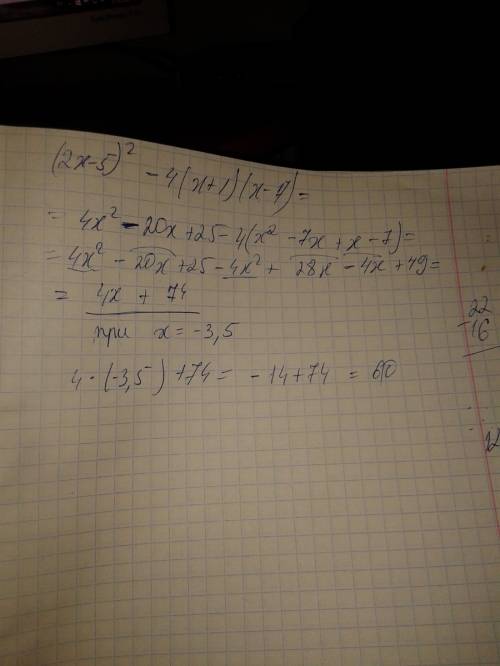 (2x-5)² - 4(x+1)(x-7)=
= 4x² - 20x + 25 - 4(x² - 7x + x - 7)=
= 4x² - 20x + 25 - 4x² + 28x - 4x + 49=
= 4x + 74
при x = -3,5
4 · (-3,5) + 74 = -14 + 74 = 60
22
16